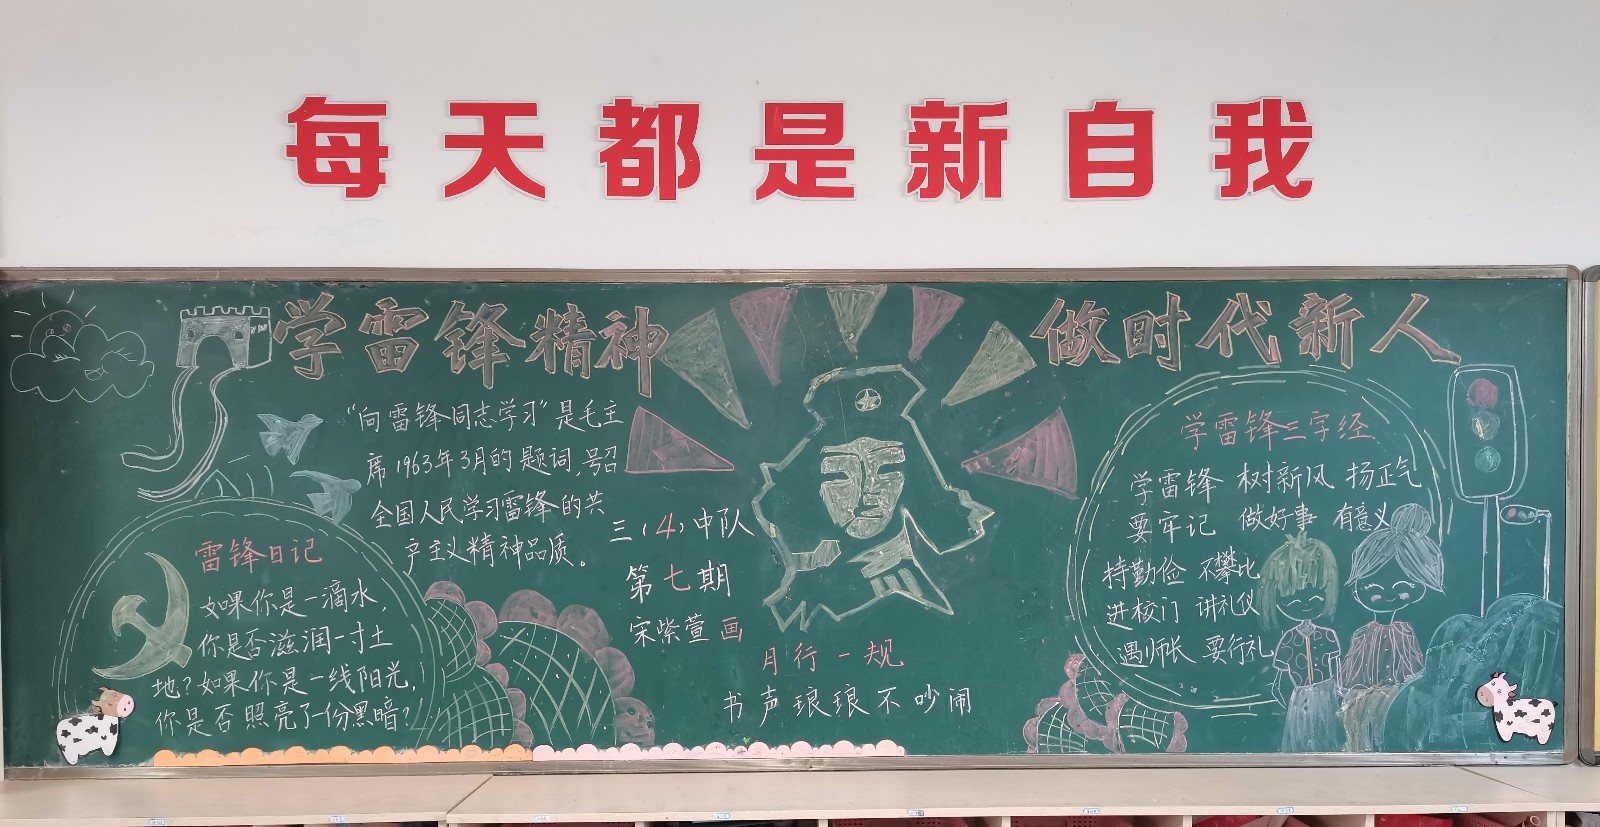 每天都是新自我
学雷锋精神
做时代新人
“向雷锋同志学习”是毛主
席1963年3月的题词,号召
全国人民学习雷锋的共
产主义精神品质。
雷锋日记
如果你是一滴水,
你是否滋润一寸土
地?如果你是一线阳光,
你是否照亮了一份黑暗?
三(4)中队
第七期
宋紫萱画
月行一规
书声琅琅不吵闹
学雷锋三字经
学雷锋 树新风 扬正气
要牢记 做好事 有意义
持勤俭 不攀比
进校门 讲礼仪
遇师长 要行礼